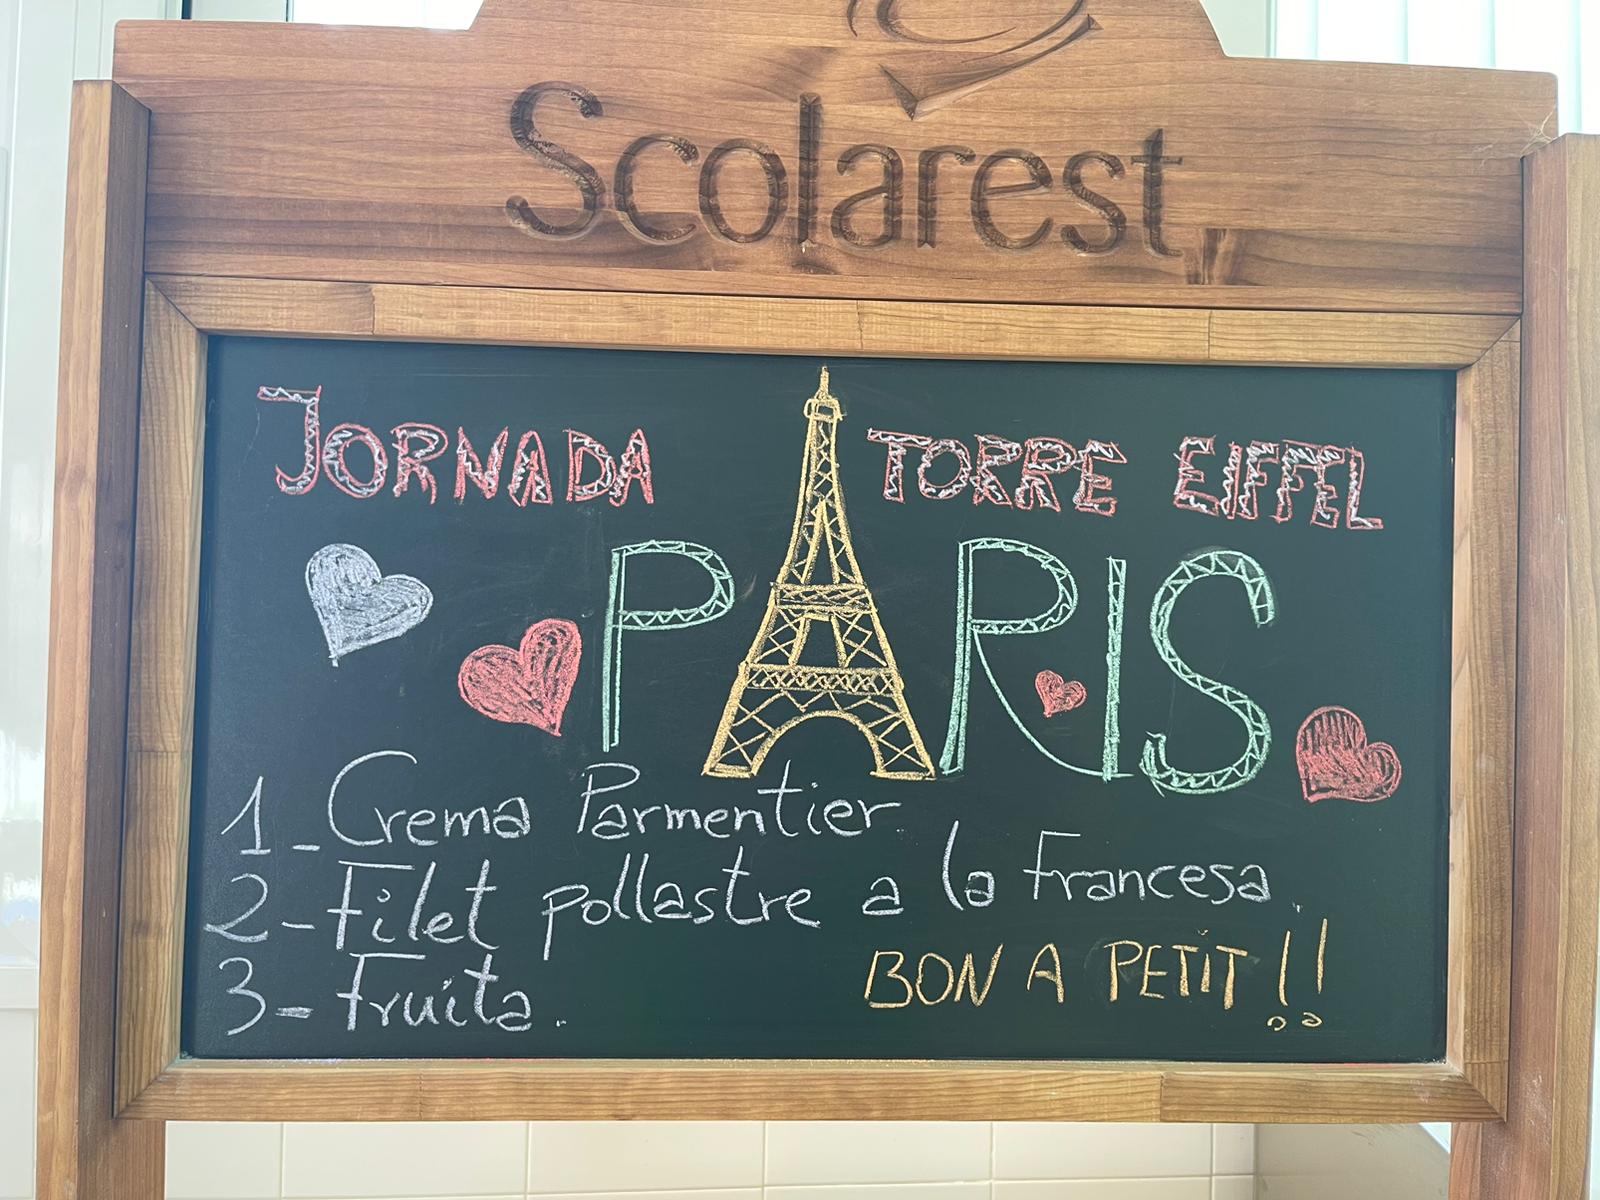 Scolarest
JORNADA TORRE EIFFEL
PARIS
1_Crema Parmentier
2-Filet pollastre a la Francesa.
3-Fruita.
BON A PETIT!!